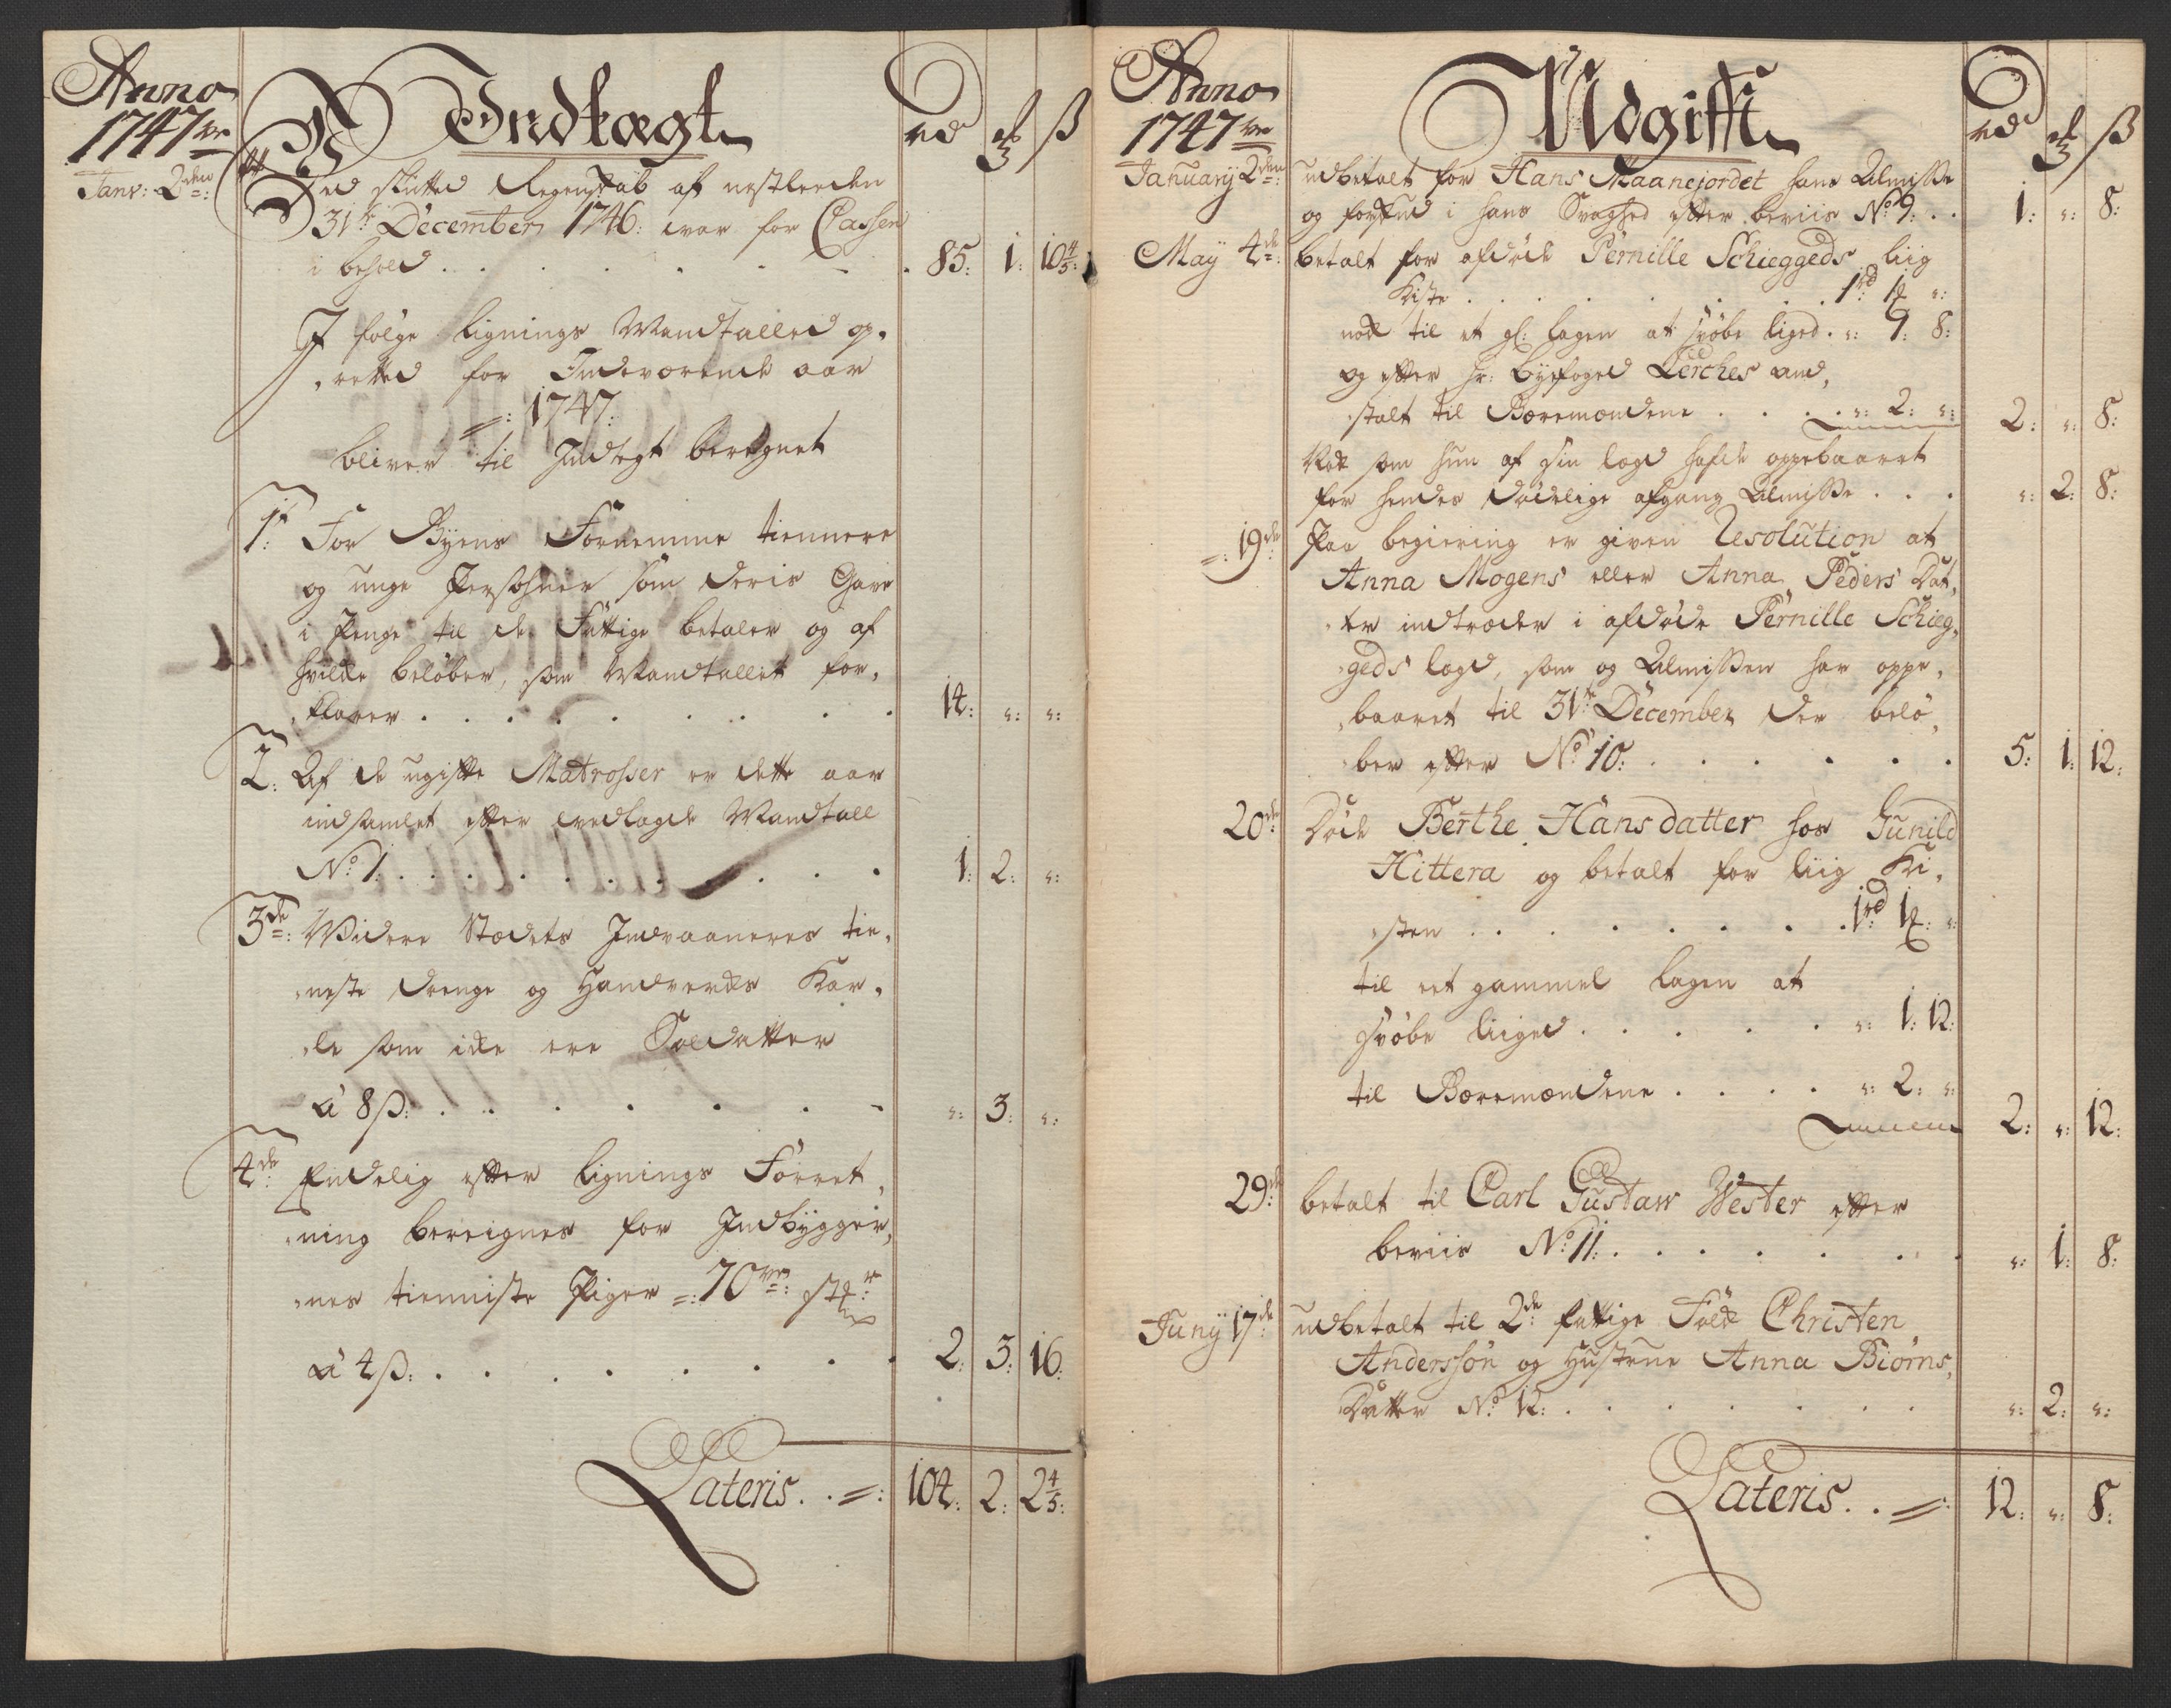 Anno
1747 ve
Indtægt
rd ß
Janv: 2den:
Ved slutted Regenskab af nestleeden
31te December 1746: war for Cassen
i behold . . . . . . 85: 1: 10 4/5:
I følge Lignings Mandtalled op,
,retted for Indeværende aar
=: 1747:
bliver til Indtegt beregnet
1te: For Byens Fornemme tiennere
og unge Persohner som deris Gave
i Penge til de Fattige betaler og af
hvilke beløber, som Mandtallet for,
,klarer . . . . . . . . . 14: ": ":
2: Af de ugifte Matrosser er dette aar
indsamlet efter vedlagde Mandtall
No: 1: . . . . . . . . . 1: 2: ":
3de: Widere Stædets Indvaaneres tie,
,neste drenge og Handverks Kar,
,le som icke ere Soldatter
á 8 ß: . . . . . . . ": 3: ":
4de: Endelig efter Lignings Forret,
,ning bereignes for Indbygger,
,nes tienniste Piger =: 70ve: stkr:
á 4 ß: . . . . . . . . 2: 3: 16:
Lateris . . =: 104: 2: 2 4/5:
Anno
1747 ve
Udgifft
rd ß
January 2den: udbetalt for Hans Maanejordet hans Almisse
og forskud i hans Svaghed efter beviis No: 9: . . 1: ": 8:
May 4de: betalt for afdøde Pernille Schieggeds liig
Kiste . . . . . . . . 1rd 1 ":
nok til et gl: lagen at svøbe liged . ": 1: 8:
og efter Hr: Byefoged Lerches and,
,stalt til Bæremændene . . . . ": 2: ": 2: ": 8:
Nok som hun af sin lagd hafde oppebaaret
for hendes dødelige afgang Almisse . . . ": 2: 8:
=: 19de: Paa begiering er given Resolution at
Anna Mogens eller Anna Peders Dat,
,ter indtræder i afdøde Pernille Schieg,
,geds lagd, som og Almissen har oppe,
,baaret til 31te December der belø,
,ber efter No: 10: . . . . . . 5: 1: 12:
20de: Døde Berthe Hansdatter hos Gunild
Hittera og betalt for liig Ki,
,sten . . . . . . . . 1rd 1 ":
til eet gammel lagen at
svøbe liiged . . . . . ": 1: 12:
til Bæremændene . . . . ": 2: ":
2: ": 12:
29de: betalt til Carl Gustaw Wester efter
beviis No: 11: . . . . . . . ": 1: 8:
Juny 17de: udbetalt til 2de fattige Folck Christen
Anderssøn og Hustrue Anna Biørns,
Datter No: 12: . . . . . . . ": 2: ":
Lateris . . =: 12: ": 8: